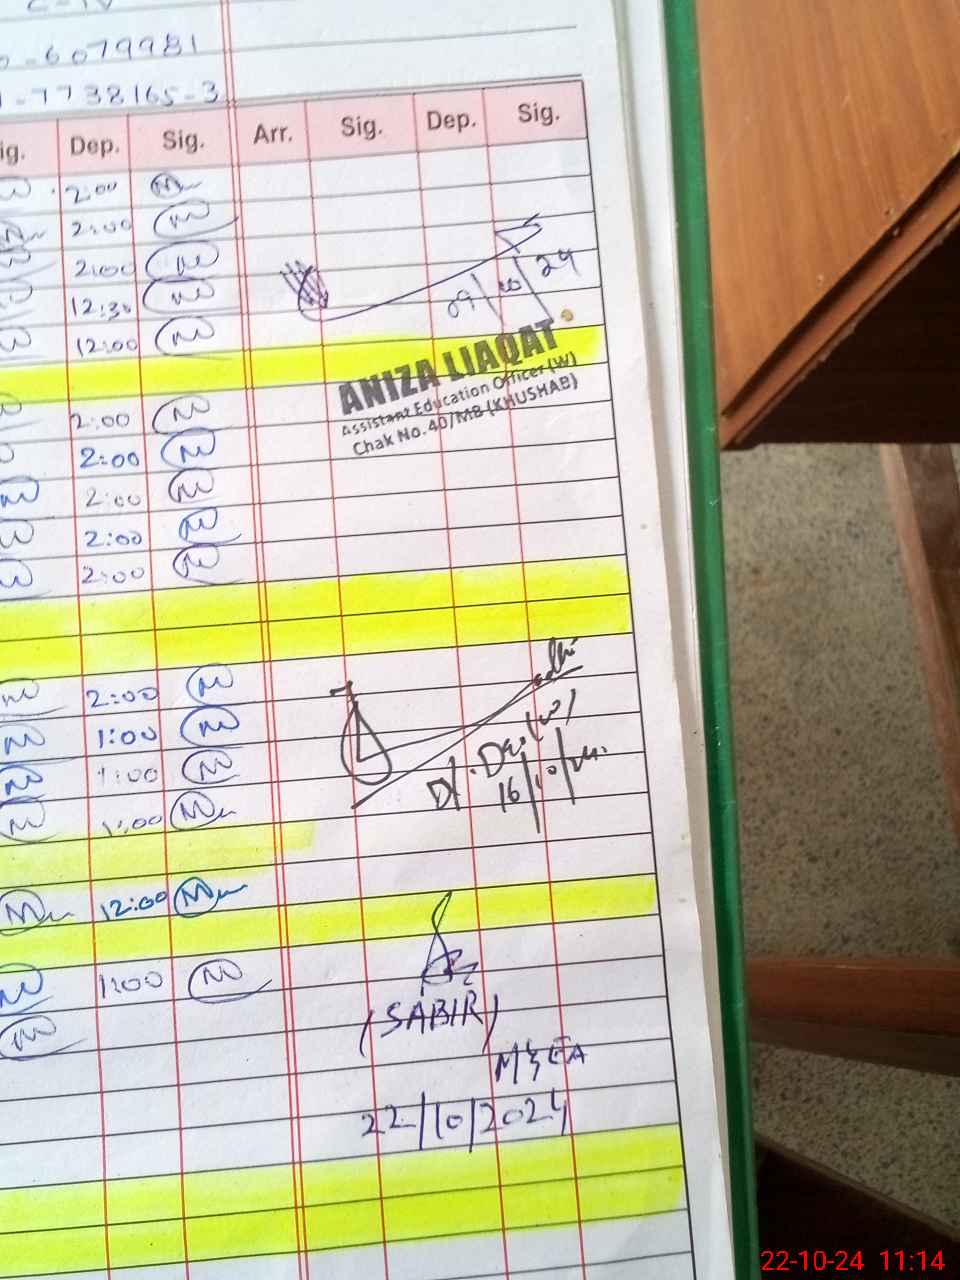 -6079981
-7738165-3
ig. Dep. Sig. Arr. Sig. Dep. Sig.
2:00
2:00
2:00
12:30
12:00
09/10/24
ANIZA LIAQAT
Assistant Education Officer (W)
Chak No. 40/MB (KHUSHAB)
2:00
2:00
2:00
2:00
2:00
2:00
1:00
1:00
1:00
16/10/
12:00
1:00
(SABIR)
M&EA
22/10/2024
22-10-24 11:14